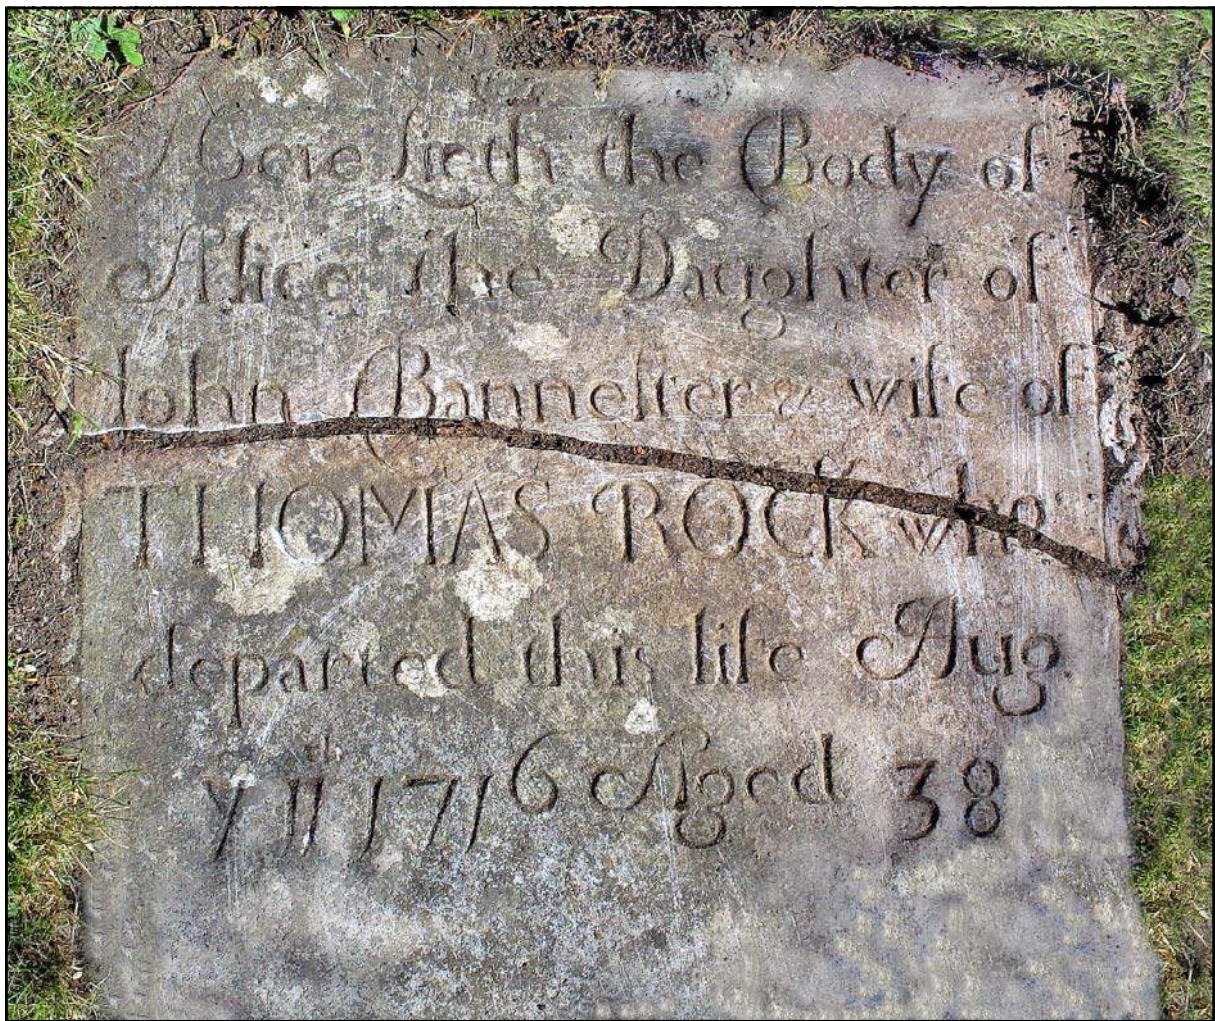 Here Lieth the Body of
Alice the Daughter of
John Bannester & wife of
THOMAS ROCK who
departed this life Aug.
y 11th 1716 Aged 38